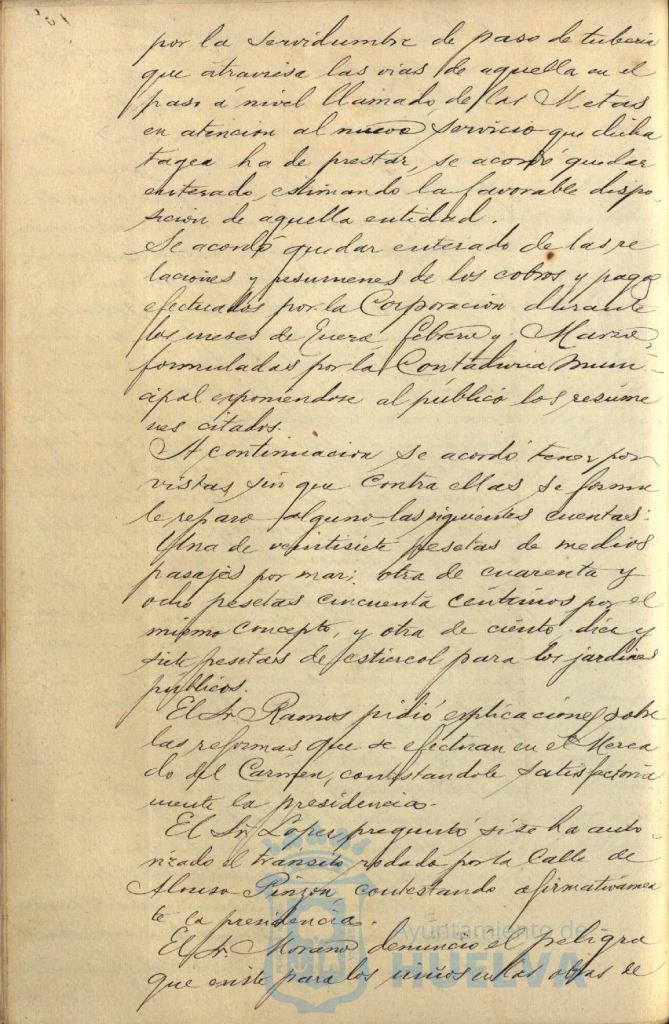 por la servidumbre de paso de tuberia
que atraviesa las vias de aquella en el
paso á nivel llamado de las Metas
en atencion al nuevo servicio que dicha
tagea ha de prestar, se acordó quedar
enterado, estimando la favorable dispo-
sicion de aquella entidad.
Se acordó quedar enterado de las re
laciones y resumenes de los cobros y pagos
efectuados por la Corporacion durante
los meses de Enero, Febrero y Marzo,
formuladas por la Contaduria muni-
cipal exponiendose al público los resúme
nes citados.
A continuacion se acordó tener por
vistas, sin que contra ellas se formu
le reparo alguno las siguientes cuentas:
Una de veintisiete pesetas de medios
pasajes por mar; otra de cuarenta y
ocho pesetas cincuenta centimos por el
mismo concepto, y otra de ciento diez y
siete pesetas de estiercol para los jardines
públicos.
El Sr. Ramos pidió explicaciones sobre
las reformas que se efectuan en el Merca
do del Carmen, contestandole satisfactoria
mente la presidencia.
El Sr. Lopez preguntó si se ha auto-
rizado el tránsito rodado por la Calle de
Alonso Pinzon contestando afirmativamen
te la presidencia.
El Sr. Morano denunció el peligro
que existe para los niños en las obras de
Ayuntamiento de
HUELVA